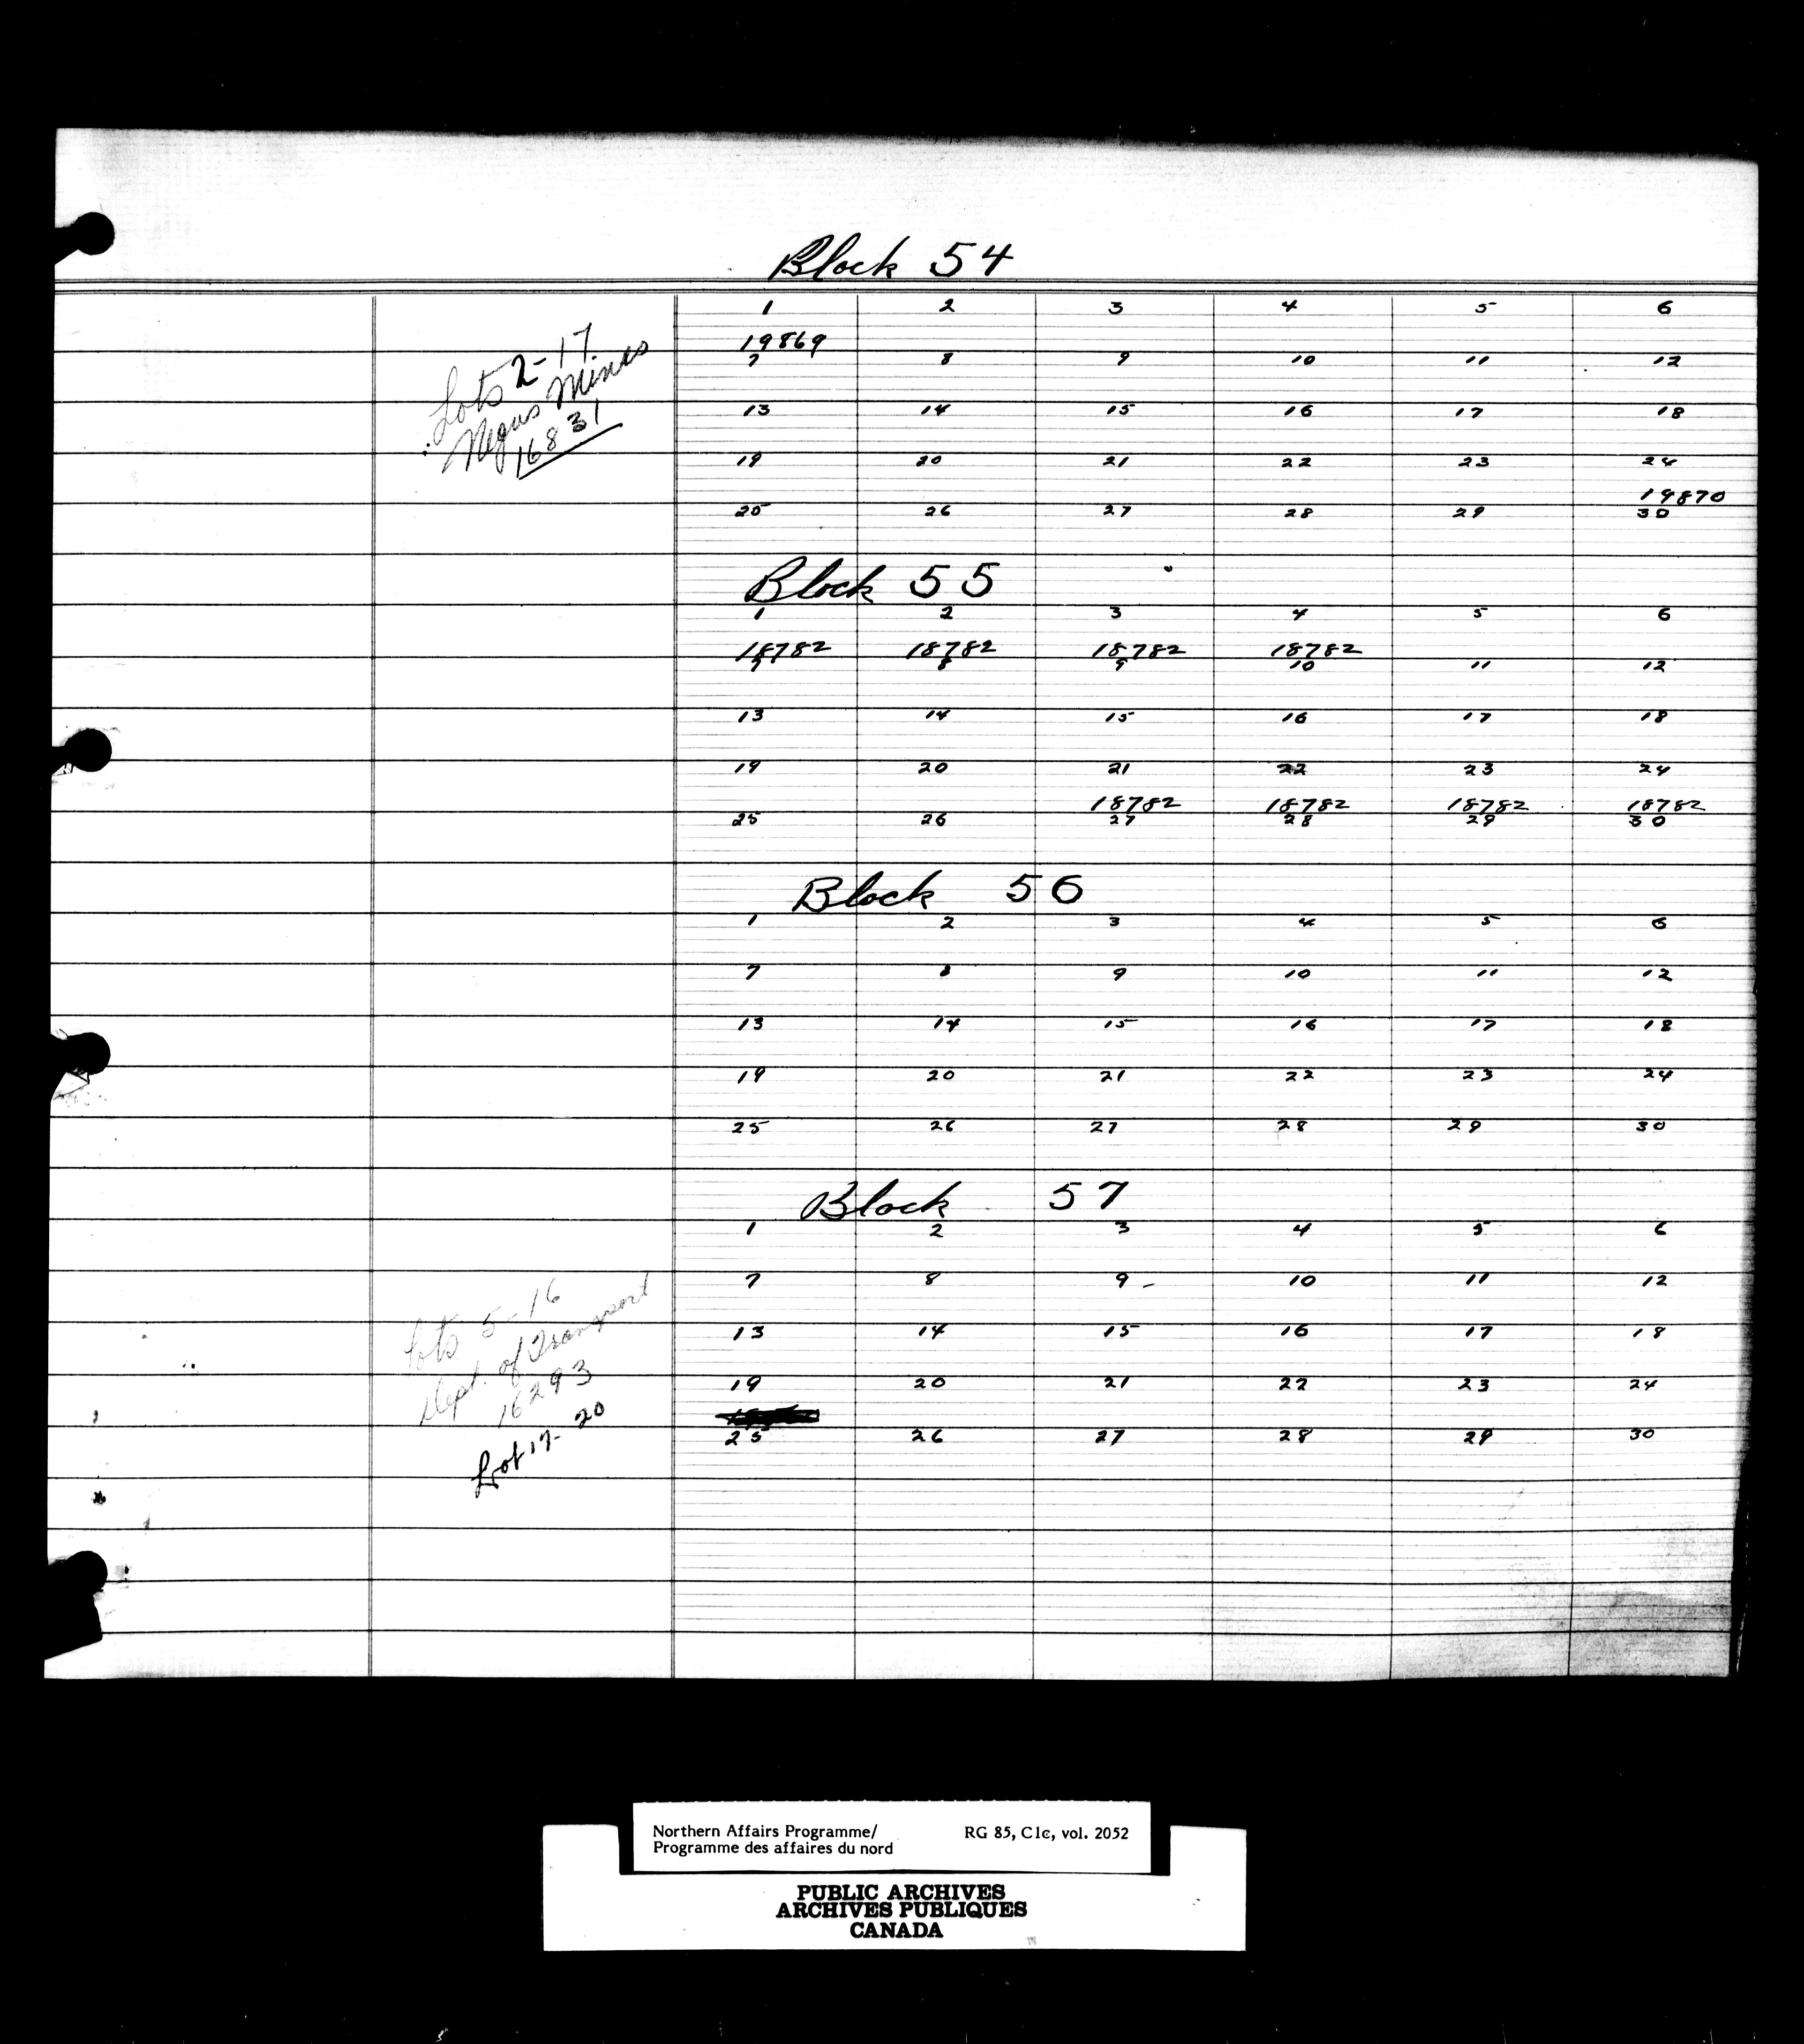 Block 54
1 2 3 4 5 6
19869
7 8 9 10 11 12
13 14 15 16 17 18
19 20 21 22 23 24
19870
25 26 27 28 29 30
Lots 2-17
Negus Mines
16831
Block 55
1 2 3 4 5 6
18782 18782 18782 18782
7 8 9 10 11 12
13 14 15 16 17 18
19 20 21 22 23 24
18782 18782 18782 18782
25 26 27 28 29 30
Block 56
1 2 3 4 5 6
7 8 9 10 11 12
13 14 15 16 17 18
19 20 21 22 23 24
25 26 27 28 29 30
Block 57
1 2 3 4 5 6
7 8 9 - 10 11 12
13 14 15 16 17 18
19 20 21 22 23 24
25 26 27 28 29 30
Lots 5-16
Dept. of Transport
16293
Lot 17-20
Northern Affairs Programme/
Programme des affaires du nord
RG 85, C1c, vol. 2052
PUBLIC ARCHIVES
ARCHIVES PUBLIQUES
CANADA